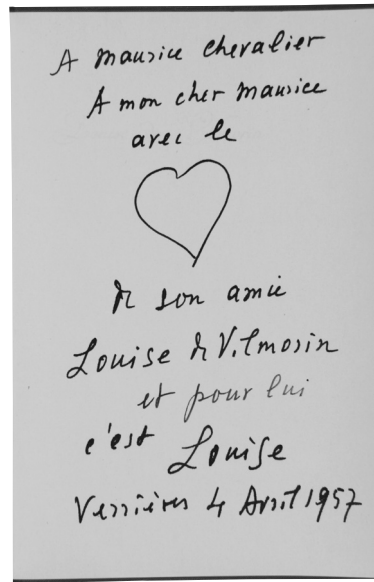 A Maurice Chevalier
A mon cher Maurice
avec le
de son amie
Louise de Vilmorin
et pour lui
c'est Louise
Verrières 4 Avril 1957